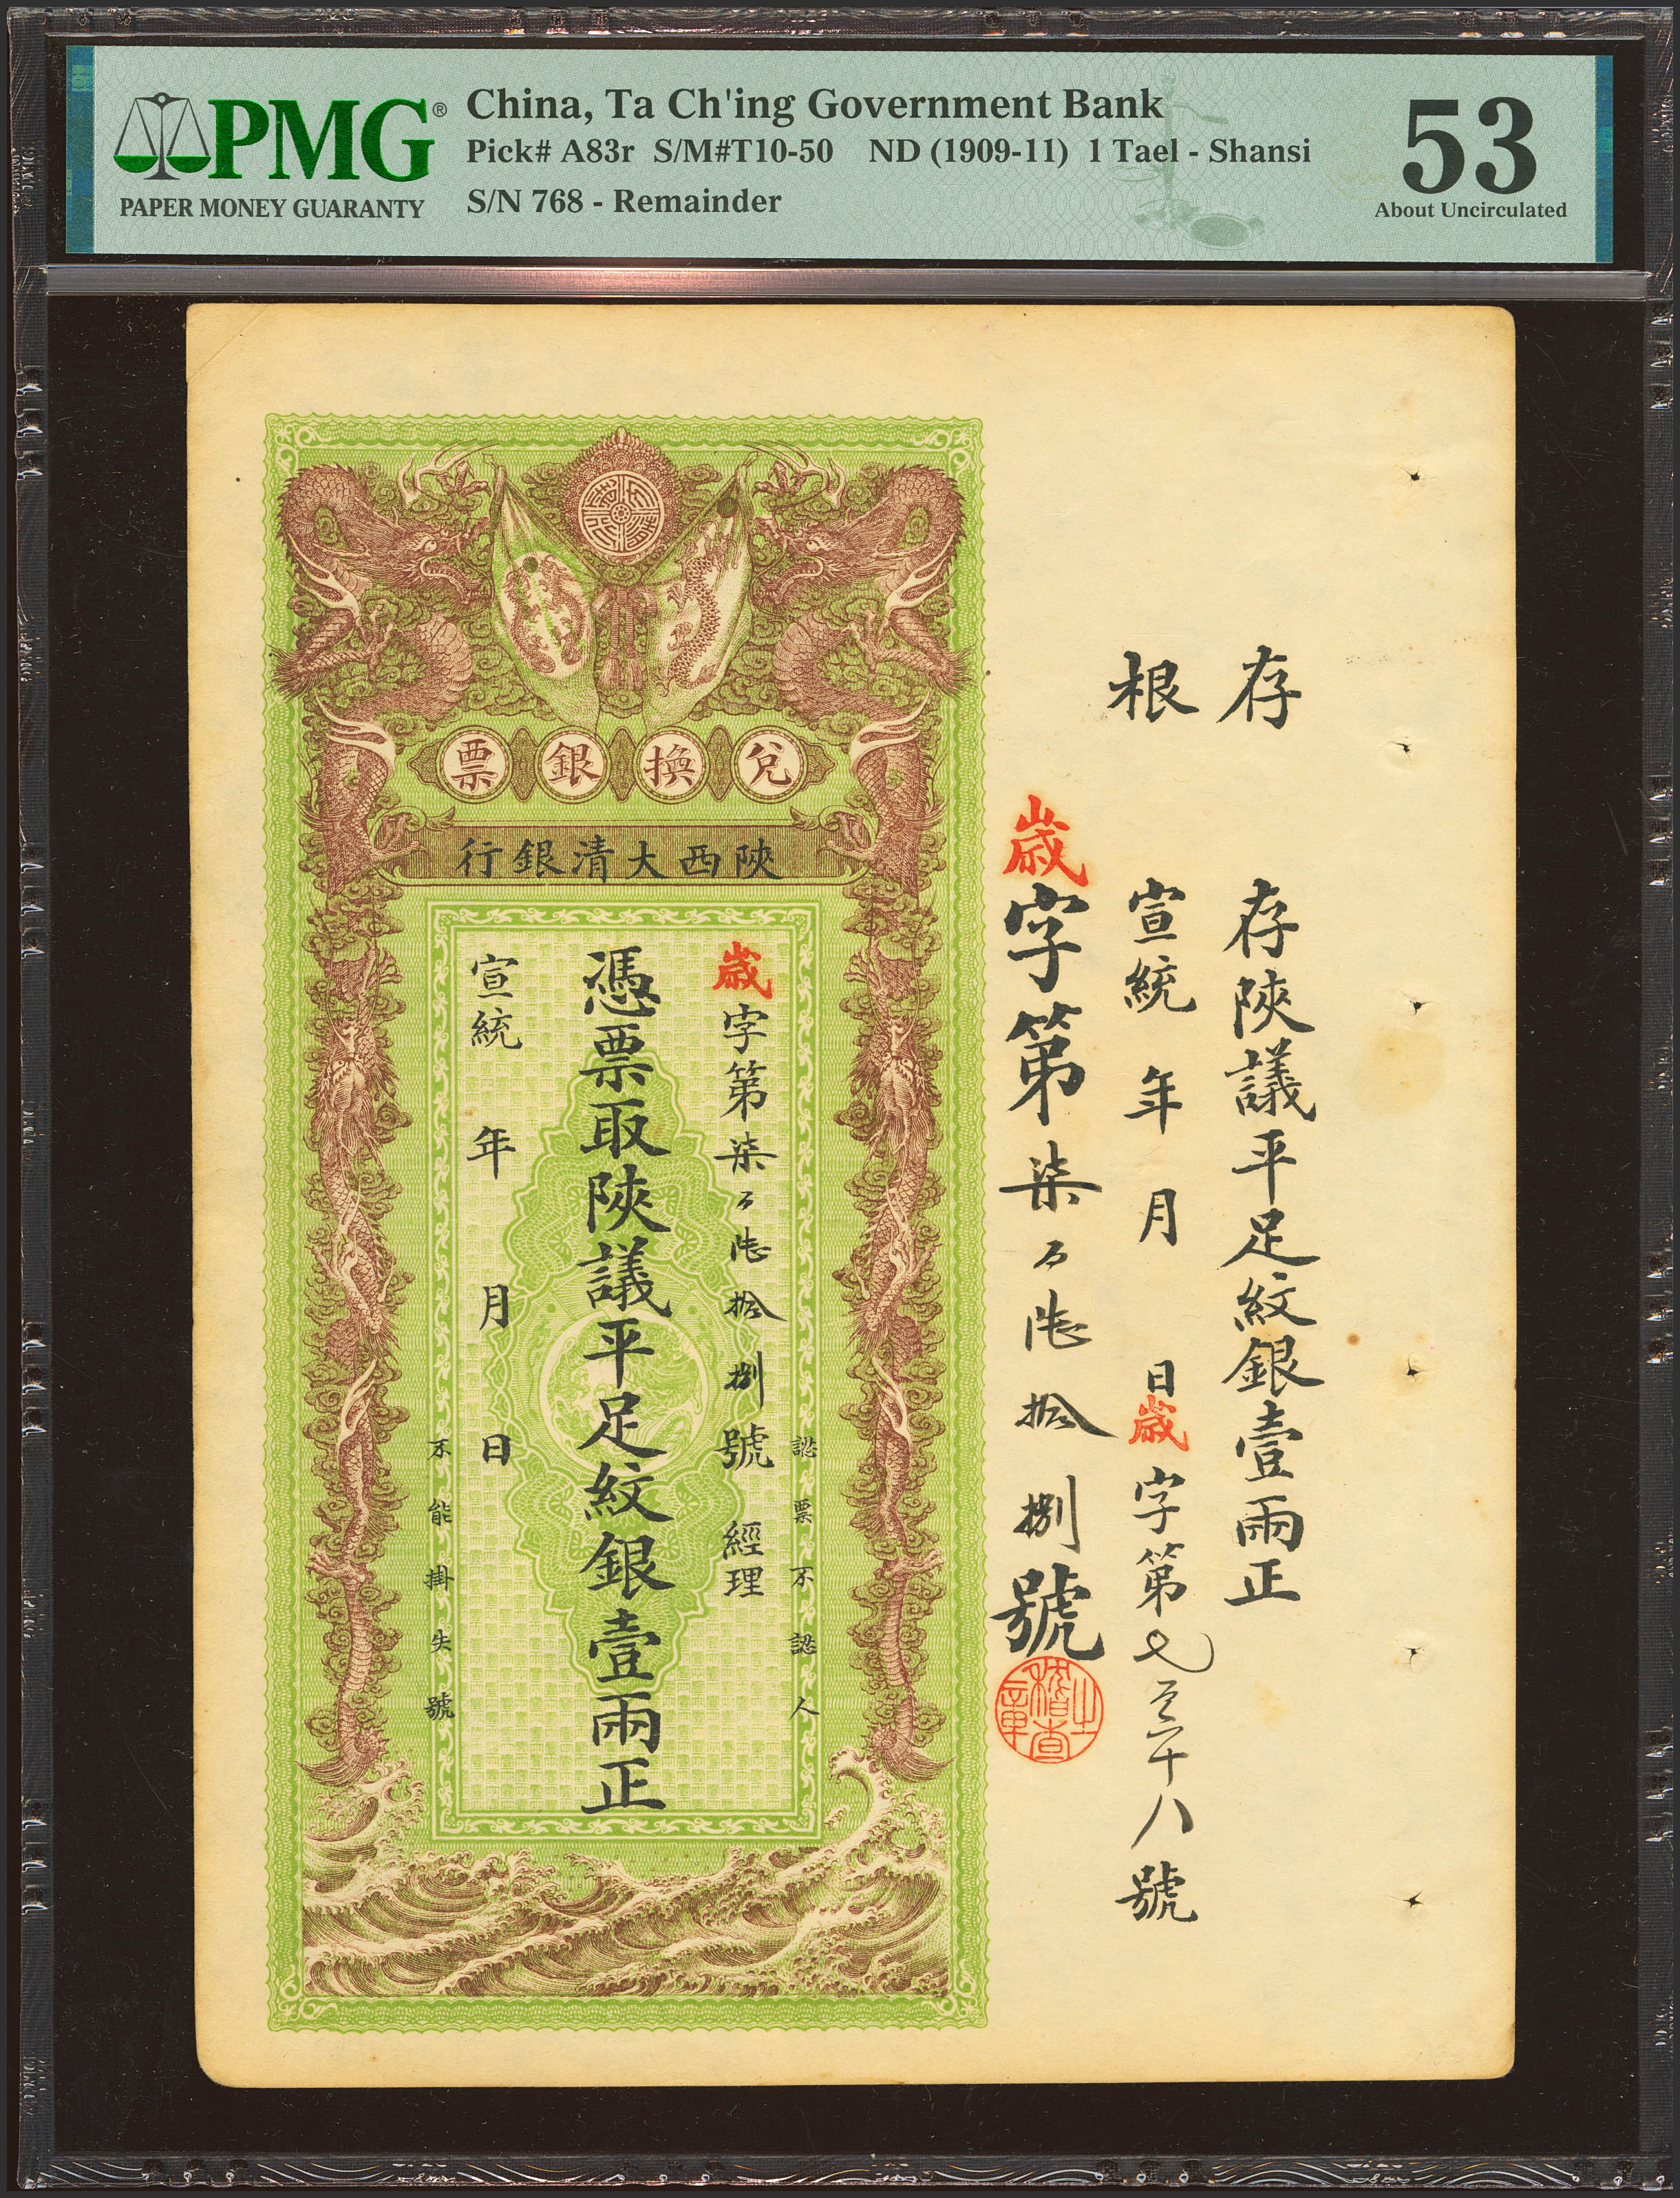 PMG®
PAPER MONEY GUARANTY
China, Ta Ch'ing Government Bank
Pick# A83r S/M#T10-50 ND (1909-11) 1 Tael - Shansi
S/N 768 - Remainder
53
About Uncirculated
存根
存陝議平足紋銀壹兩正
宣統 年 月 日歲字第七百六十八號
歲字第柒百陸拾捌號
稽查之章
兌換銀票
陝西大清銀行
認票不認人
歲字第柒百陸拾捌號 經理
憑票取陝議平足紋銀壹兩正
宣統 年 月 日
不能掛失號